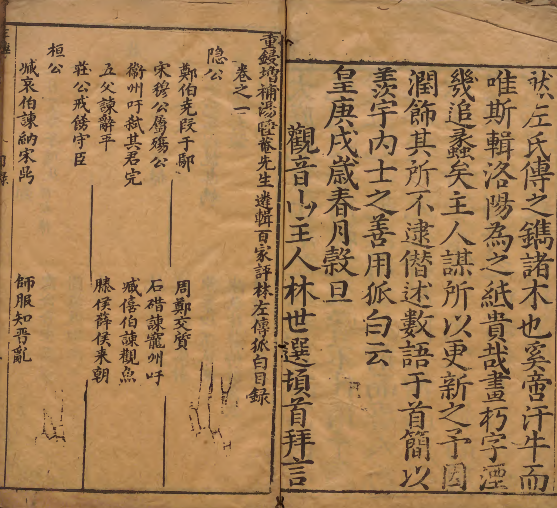 然左氏傳之鐫諸木也奚啻汗牛而
唯斯輯洛陽為之紙貴哉晝朽字湮
幾追蠡矣主人謀所以更新之予因
潤飾其所不逮僭述數語于首簡以
羨宇內士之善用狐白云
皇庚戌歲春月穀旦
觀音山主人林世選頓首拜言
重鋟增補湯睡菴先生遴輯百家評林左傳狐白目錄
卷之一
隐公
鄭伯克段于鄢
周鄭交質
宋穆公屬殤公
石碏諫寵州吁
衞州吁弑其君完
臧僖伯諫觀魚
五父諫辭平
滕侯薛侯来朝
莊公戒餙守臣
桓公
臧哀伯諫納宋鼎
師服知晋亂